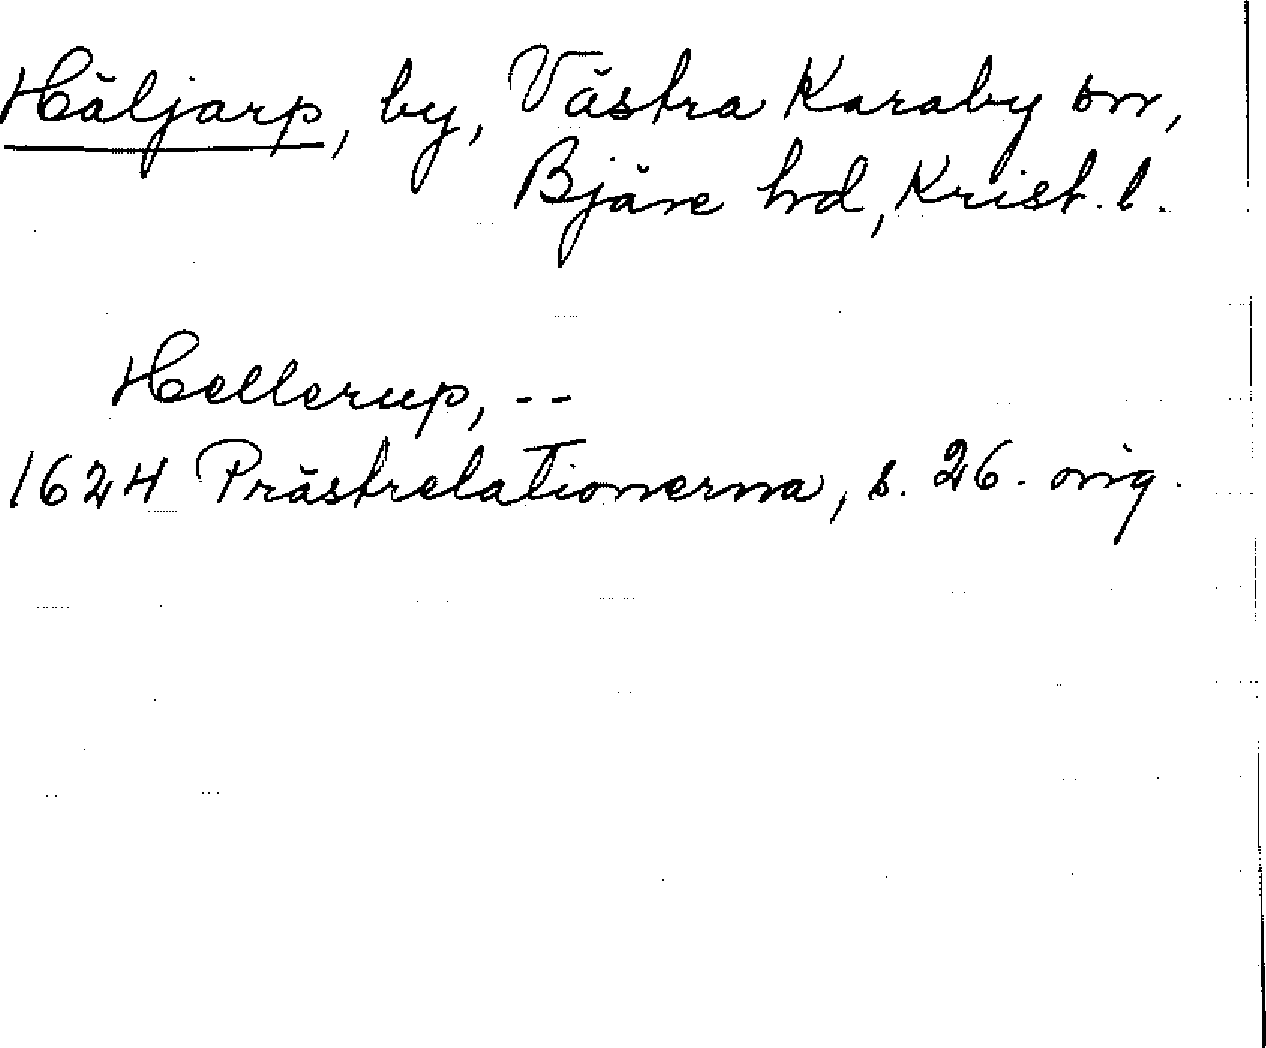 Häljarp, by, Västra Karaby sn,
Bjäre hd, Krist. l.
Hellerup, --
1624 Prästrelationerna, s. 26. orig.